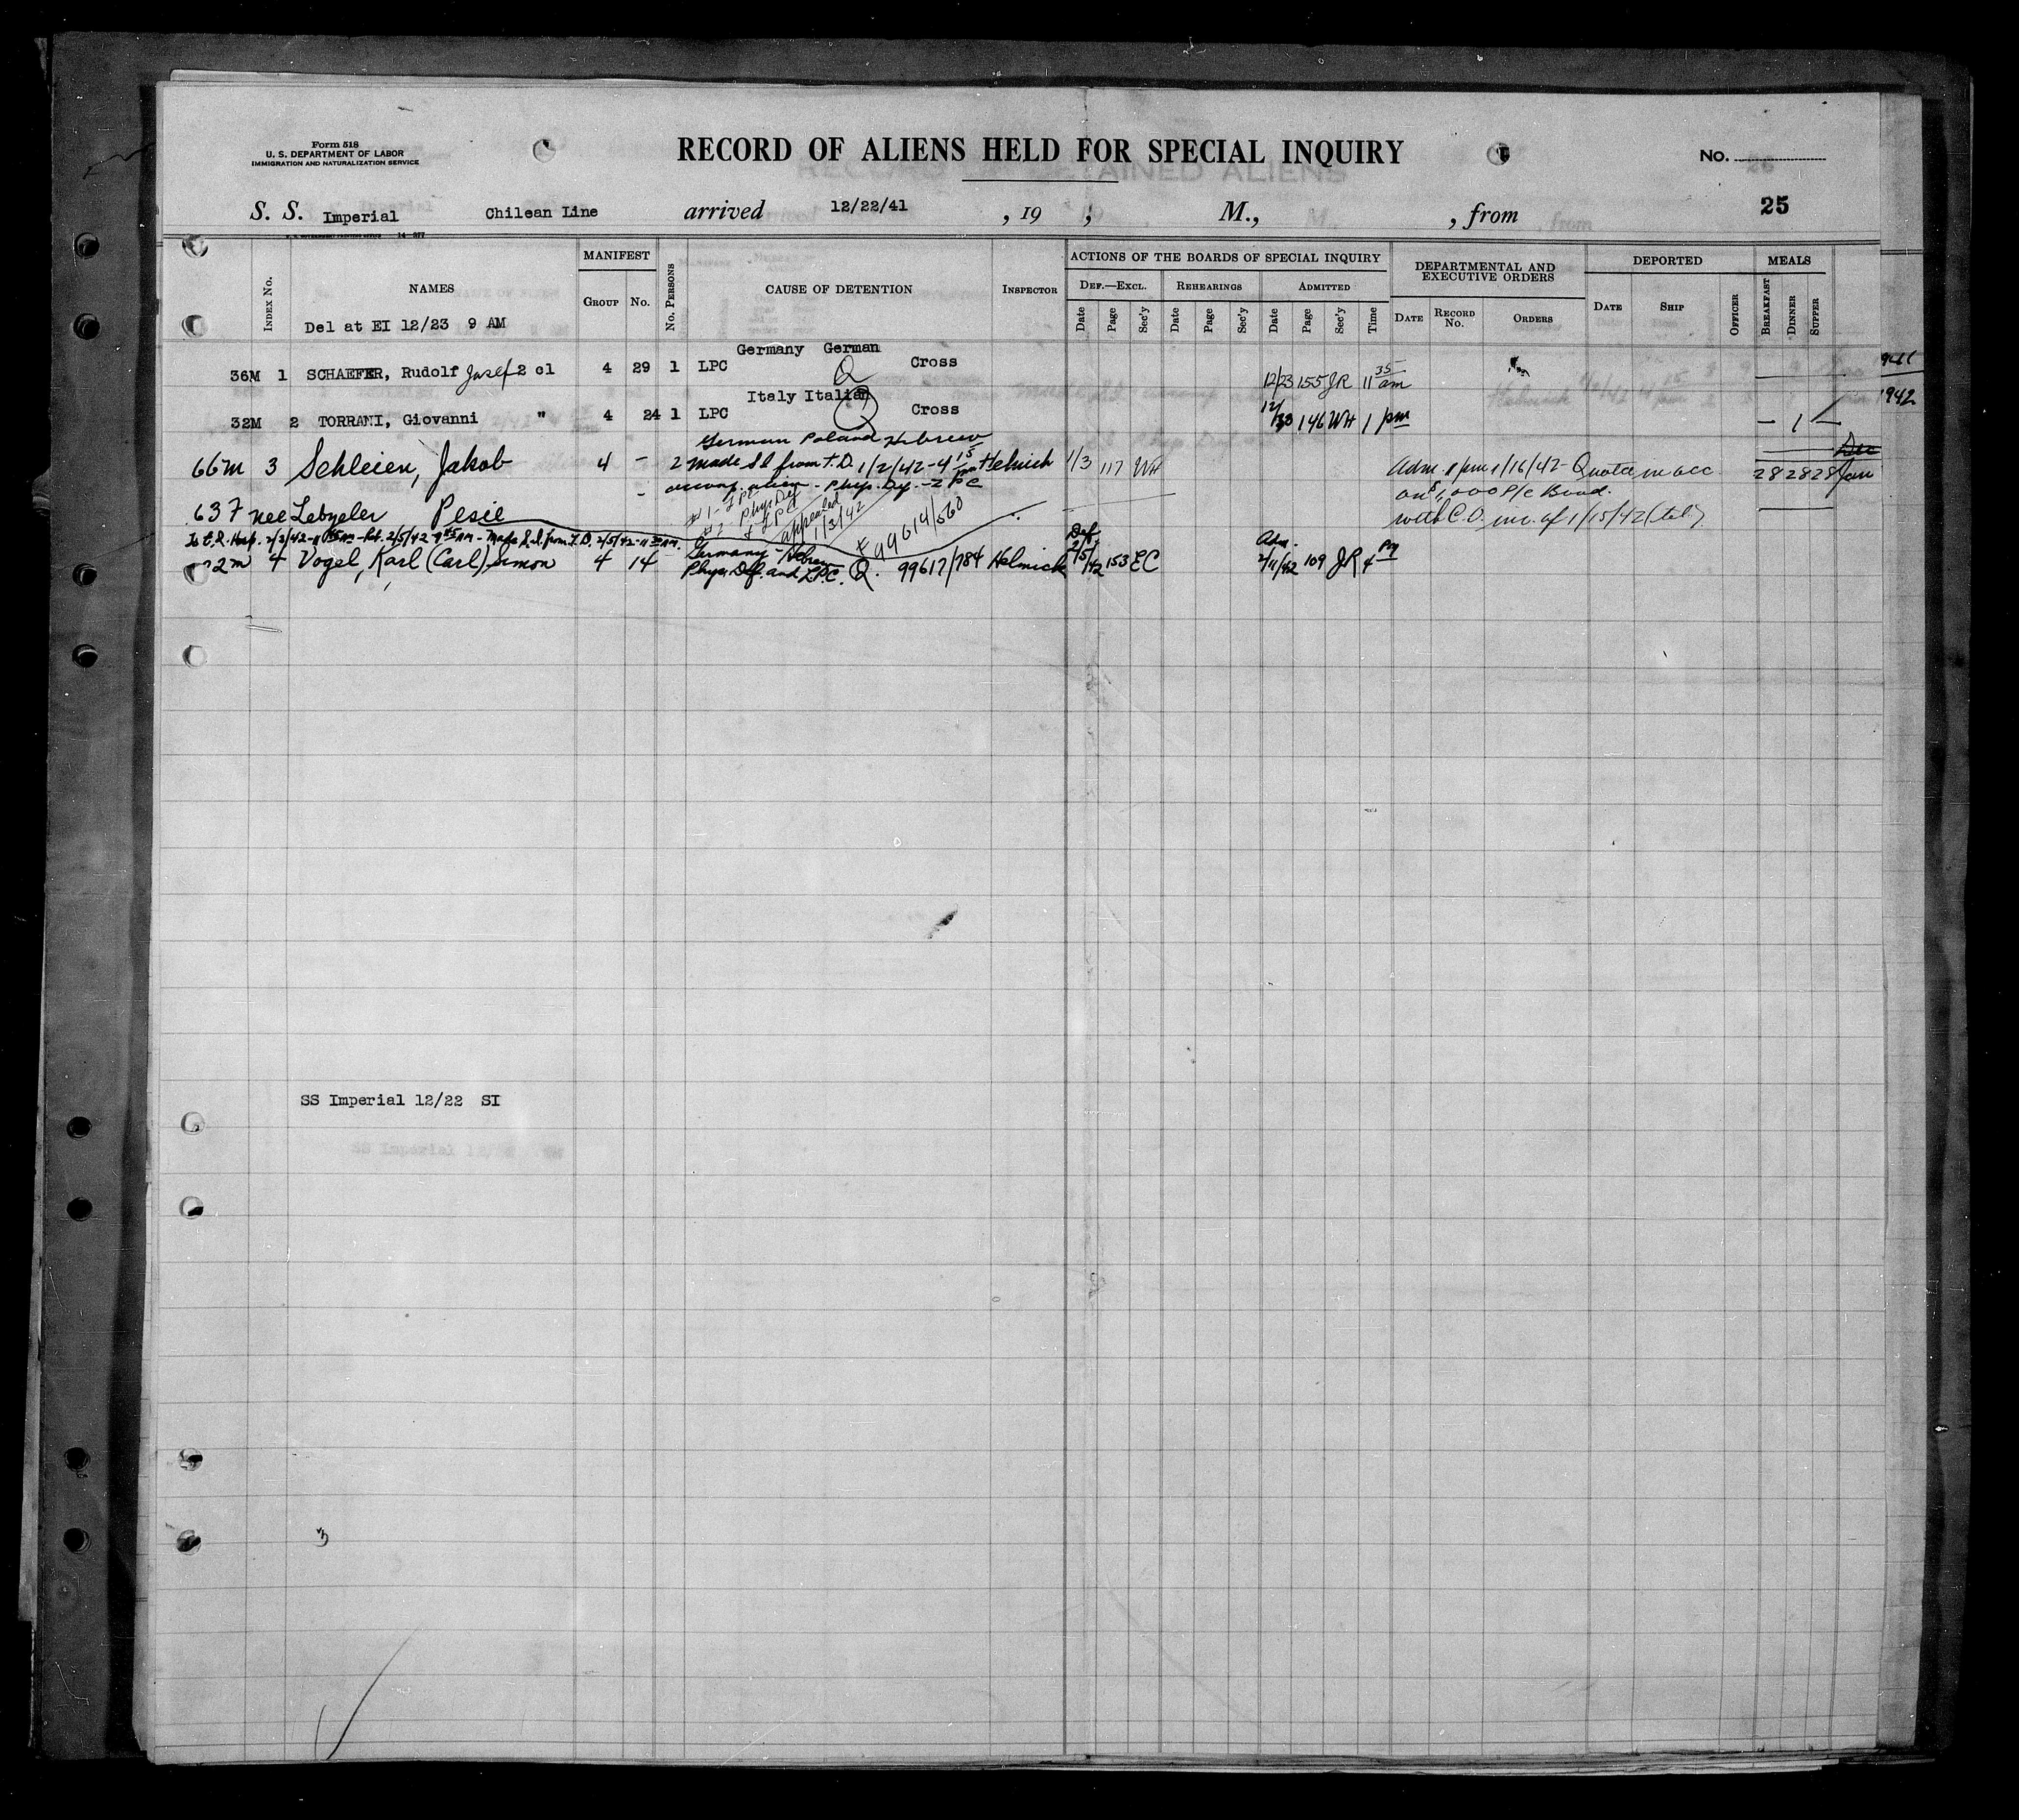 Form 518
U. S. DEPARTMENT OF LABOR
IMMIGRATION AND NATURALIZATION SERVICE
RECORD OF ALIENS HELD FOR SPECIAL INQUIRY
No.
S. S. Imperial Chilean Line arrived 12/22/41 , 19 , M., , from 25
14-377
INDEX No. NAMES MANIFEST GROUP No. No. PERSONS CAUSE OF DETENTION INSPECTOR
ACTIONS OF THE BOARDS OF SPECIAL INQUIRY
DEF.—EXCL. Date Page Sec'y REHEARINGS Date Page Sec'y ADMITTED Date Page Sec'y Time
DEPARTMENTAL AND EXECUTIVE ORDERS DATE RECORD No. ORDERS
DEPORTED DATE SHIP OFFICER
MEALS BREAKFAST DINNER SUPPER
Del at EI 12/23 9 AM
Germany German
36M 1 SCHAEFER, Rudolf Josef 2 cl 4 29 1 LPC Q Cross 12/23 155 JR 11 35 am
Italy Italian
1942
32M 2 TORRANI, Giovanni " 4 24 1 LPC Q Cross 12/ 146 WH 1 pm — 1 —
German Poland Hebrew
Dec
66m 3 Schleien, Jakob 4 - 2 made S I from T.D. 1/2/42 - 4 15 pm Helmick 1/3 117 WH Adm. 1/16/42 - Quota in acc 28 28 28 Jan
- accomp. alien - Phys. Def. - L P C
on $1,000 P/c Bond.
63 F nee Lebzeler Pesie
#1 - LPC
#2 Phys Def & LPC
appealed 1/3/42
# 99614/560
with C.O. inc. of 1/15/42 (tel)
To E.I. Hosp. 2/3/42 - Ret. 2/5/42 - Made S.I. from T.D. 2/5/42 - 11 AM.
Germany - Hebrew
Def. Adm.
2m 4 Vogel, Karl (Carl) Simon 4 14 Phys. Def. and L.P.C. Q. 99617/784 Helmick 2/5/42 153 EC 2/11/42 109 JR 4 PM
SS Imperial 12/22 SI